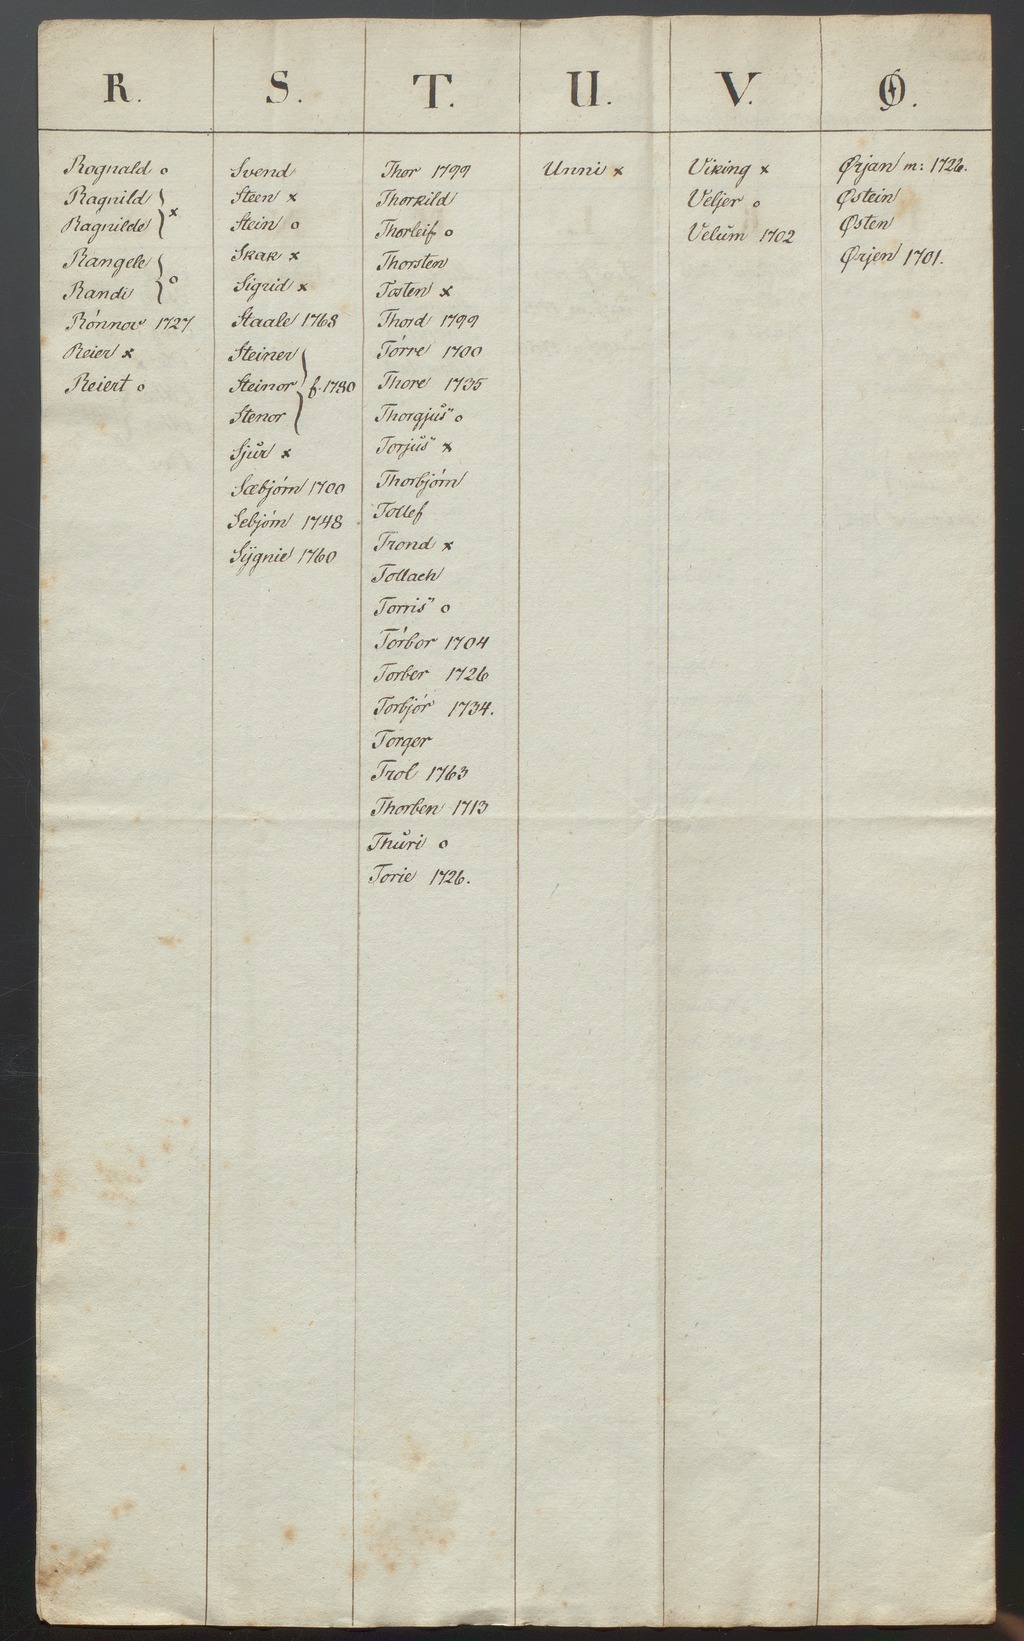 R.
Rognald o
Ragnild }
Ragnilde } x
Rangele }
Randi } o
Rónnov 1727
Reier x
Reiert o
S.
Svend
Steen x
Stein o
Skak x
Sigrid x
Staale 1768
Steiner }
Steinor } f. 1780
Stenor }
Sjur x
Sæbjórn 1700
Sebjórn 1748
Sÿgnie 1760
T.
Thor 1799
Thorkild
Thorleif o
Thorsten
Tosten x
Thord 1799
Tórre 1700
Thore 1735
Thorgjus o
Torjus x
Thorbjórn
Tollef
Trond x
Tollach
Torris o
Tórbor 1704
Torber 1726
Torbjór 1734.
Torger
Trol 1763
Thorben 1713
Thuri o
Torie 1726.
U.
Unni x
V.
Viking x
Veljer o
Velum 1702
Ø.
Ørjan m: 1726.
Østein
Østen
Ørjen 1701.